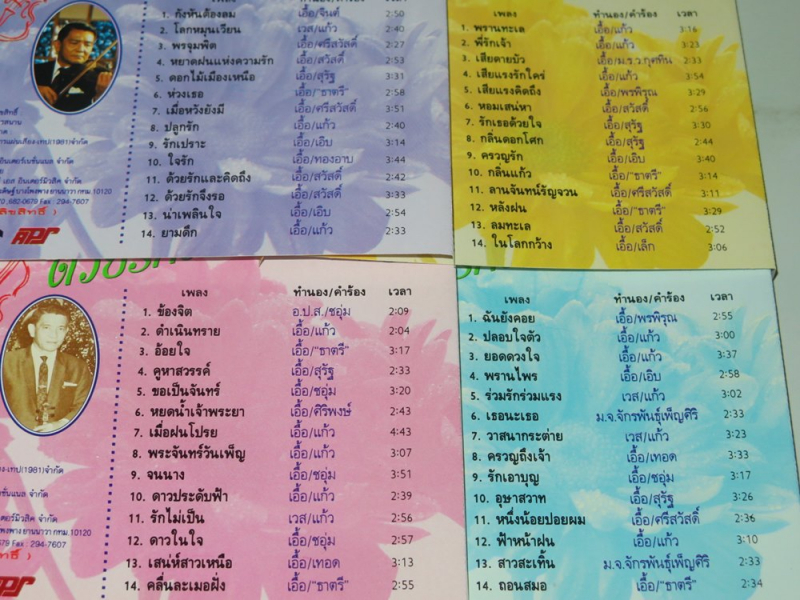 เพลง ทำนอง/คำร้อง เวลา
1. กังหันต้องลม เอื้อ/จินต์ 2:50
2. โลกหมุนเวียน เวส/แก้ว 2:40
3. พรจุมพิต เอื้อ/ศรีสวัสดิ์ 2:27
4. หยาดฝนแห่งความรัก เอื้อ/สวัสดิ์ 2:53
5. ดอกไม้เมืองเหนือ เอื้อ/สุรัฐ 3:31
6. ห่วงเธอ เอื้อ/"ธาตรี" 2:58
7. เมื่อหวังยังมี เอื้อ/ศรีสวัสดิ์ 3:51
8. ปลูกรัก เอื้อ/แก้ว 2:40
9. รักเปราะ เอื้อ/เอิบ 3:14
10. ใจรัก เอื้อ/ทองอาบ 3:44
11. ด้วยรักและคิดถึง เอื้อ/สวัสดิ์ 2:42
12. ด้วยรักจึงรอ เอื้อ/สวัสดิ์ 3:33
13. น่าเพลินใจ เอื้อ/เอิบ 2:54
14. ยามดึก เอื้อ/แก้ว 2:33
เพลง ทำนอง/คำร้อง เวลา
1. พรานทะเล เอื้อ/แก้ว 3:16
2. พี่รักเจ้า เอื้อ/แก้ว 3:23
3. เสียดายบัว เอื้อ/ม.ร.ว.กุศทิน 2:33
4. เสียแรงรักใคร่ เอื้อ/แก้ว 3:54
5. เสียแรงคิดถึง เอื้อ/พรพิรุณ 3:29
6. หอมเสน่หา เอื้อ/สวัสดิ์ 2:56
7. รักเธอด้วยใจ เอื้อ/สุรัฐ 3:30
8. กลิ่นดอกโศก เอื้อ/สุรัฐ 2:44
9. ครวญรัก เอื้อ/เอิบ 3:40
10. กลิ่นแก้ว เอื้อ/"ธาตรี" 3:14
11. ลานจันทน์รัญจวน เอื้อ/ศรีสวัสดิ์ 3:11
12. หลังฝน เอื้อ/"ธาตรี" 3:29
13. ลมทะเล เอื้อ/สวัสดิ์ 2:52
14. ในโลกกว้าง เอื้อ/เล็ก 3:06
เพลง ทำนอง/คำร้อง เวลา
1. ข้องจิต อ.ป.ส./ชอุ่ม 2:09
2. ดำเนินทราย เอื้อ/แก้ว 2:04
3. อ้อยใจ เอื้อ/"ธาตรี" 3:17
4. คูหาสวรรค์ เอื้อ/สุรัฐ 2:33
5. ขอเป็นจันทร์ เอื้อ/ชอุ่ม 3:20
6. หยดน้ำเจ้าพระยา เอื้อ/ศิริพงษ์ 2:43
7. เมื่อฝนโปรย เอื้อ/แก้ว 4:43
8. พระจันทร์วันเพ็ญ เอื้อ/แก้ว 3:07
9. จนนาง เอื้อ/ชอุ่ม 3:51
10. ดาวประดับฟ้า เอื้อ/แก้ว 2:39
11. รักไม่เป็น เวส/แก้ว 2:56
12. ดาวในใจ เอื้อ/ชอุ่ม 2:57
13. เสน่ห์สาวเหนือ เอื้อ/เทอด 3:13
14. คลื่นละเมอฝั่ง เอื้อ/"ธาตรี" 2:55
เพลง ทำนอง/คำร้อง เวลา
1. ฉันยังคอย เอื้อ/พรพิรุณ 2:55
2. ปลอบใจตัว เอื้อ/แก้ว 3:00
3. ยอดดวงใจ เอื้อ/แก้ว 3:37
4. พรานไพร เอื้อ/เอิบ 2:58
5. ร่วมรักร่วมแรง เวส/แก้ว 3:02
6. เธอนะเธอ ม.จ.จักรพันธุ์เพ็ญศิริ 2:33
7. วาสนากระต่าย เวส/แก้ว 3:23
8. ครวญถึงเจ้า เอื้อ/เทอด 3:33
9. รักเอาบุญ เอื้อ/ชอุ่ม 3:17
10. อุษาสวาท เอื้อ/สุรัฐ 3:26
11. หนึ่งน้อยปอยผม เอื้อ/ศรีสวัสดิ์ 2:36
12. ฟ้าหน้าฝน เอื้อ/แก้ว 3:10
13. สาวสะเทิ้น ม.จ.จักรพันธุ์เพ็ญศิริ 2:33
14. ถอนสมอ เอื้อ/"ธาตรี" 2:34